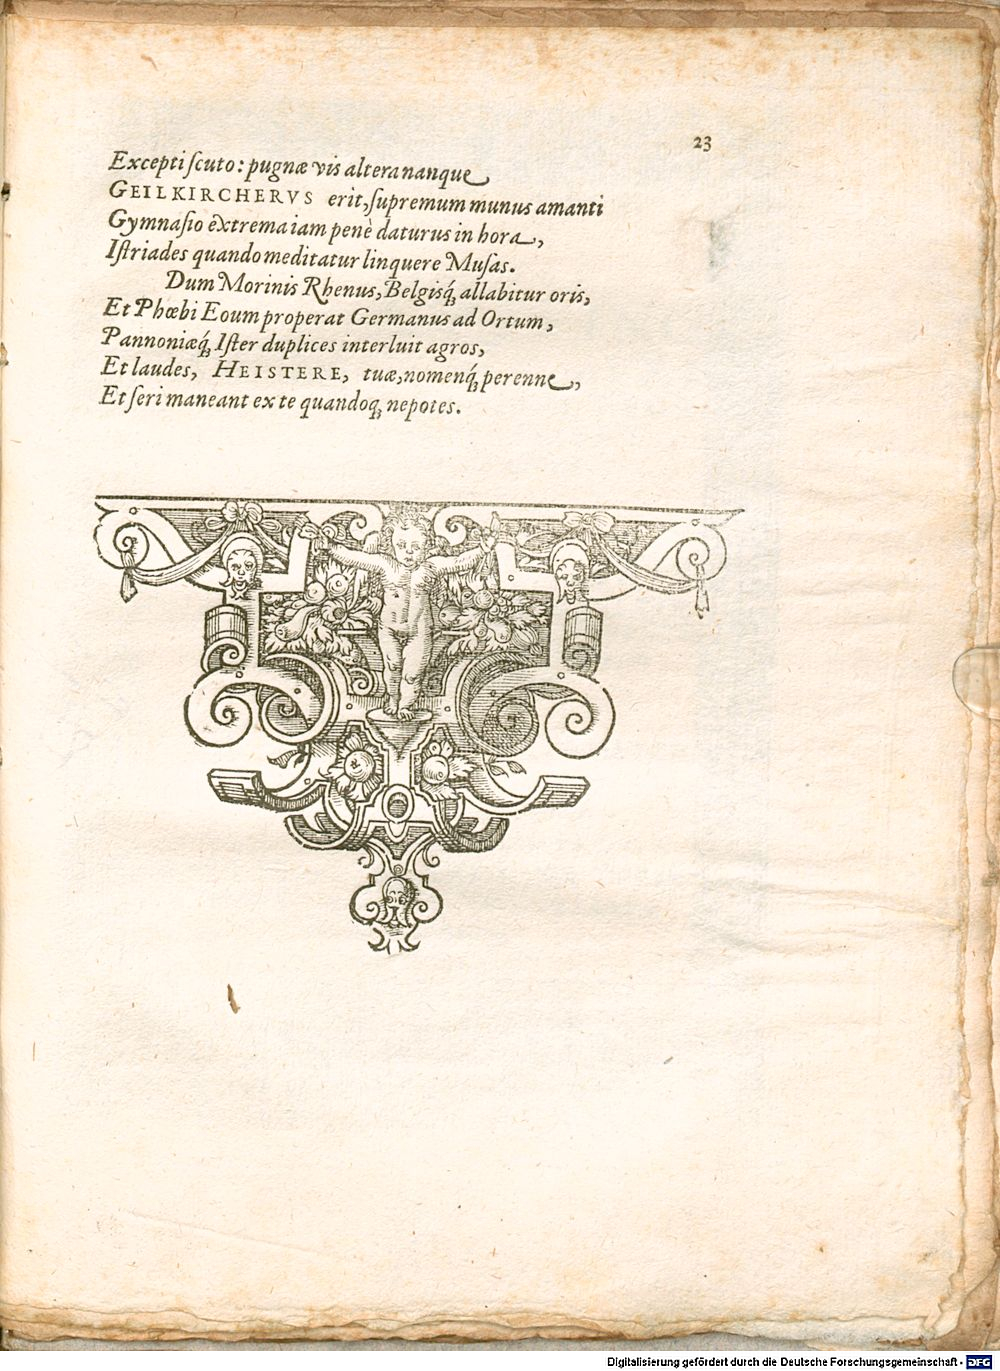 23
Excepti ſcuto: pugnæ vis altera nanque
GEILKIRCHERVS erit, ſupremum munus amanti
Gymnaſio extrema iam penè daturus in hora,
Iſtriades quando meditatur linquere Muſas.
Dum Morinis Rhenus, Belgisq́; allabitur oris,
Et Phœbi Eoum properat Germanus ad Ortum,
Pannoniæq́; Iſter duplices interluit agros,
Et laudes, HEISTERE, tuæ, nomenq́; perenne,
Et ſeri maneant ex te quandoq; nepotes.
Digitalisierung gefördert durch die Deutsche Forschungsgemeinschaft - DFG